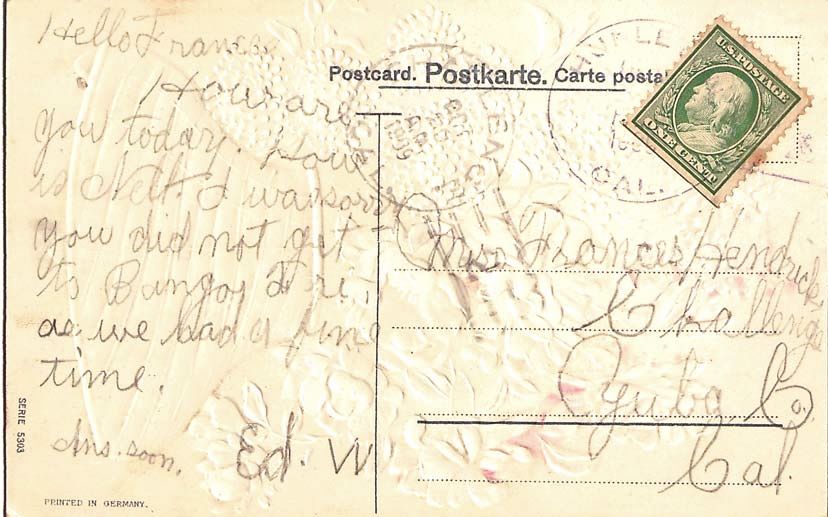 Hello Frances
How are
you today. How
is Nell. I was sorry
you did not get
to Bangor Fri.
as we had a fine
time.
Ans. soon. Ed. W
SERIE 5303
PRINTED IN GERMANY.
Postcard. Postkarte. Carte postal
U.S. POSTAGE
ONE CENT
CAL.
1909
Miss Frances Hendricks
Challenge
Yuba Co.
Cal.